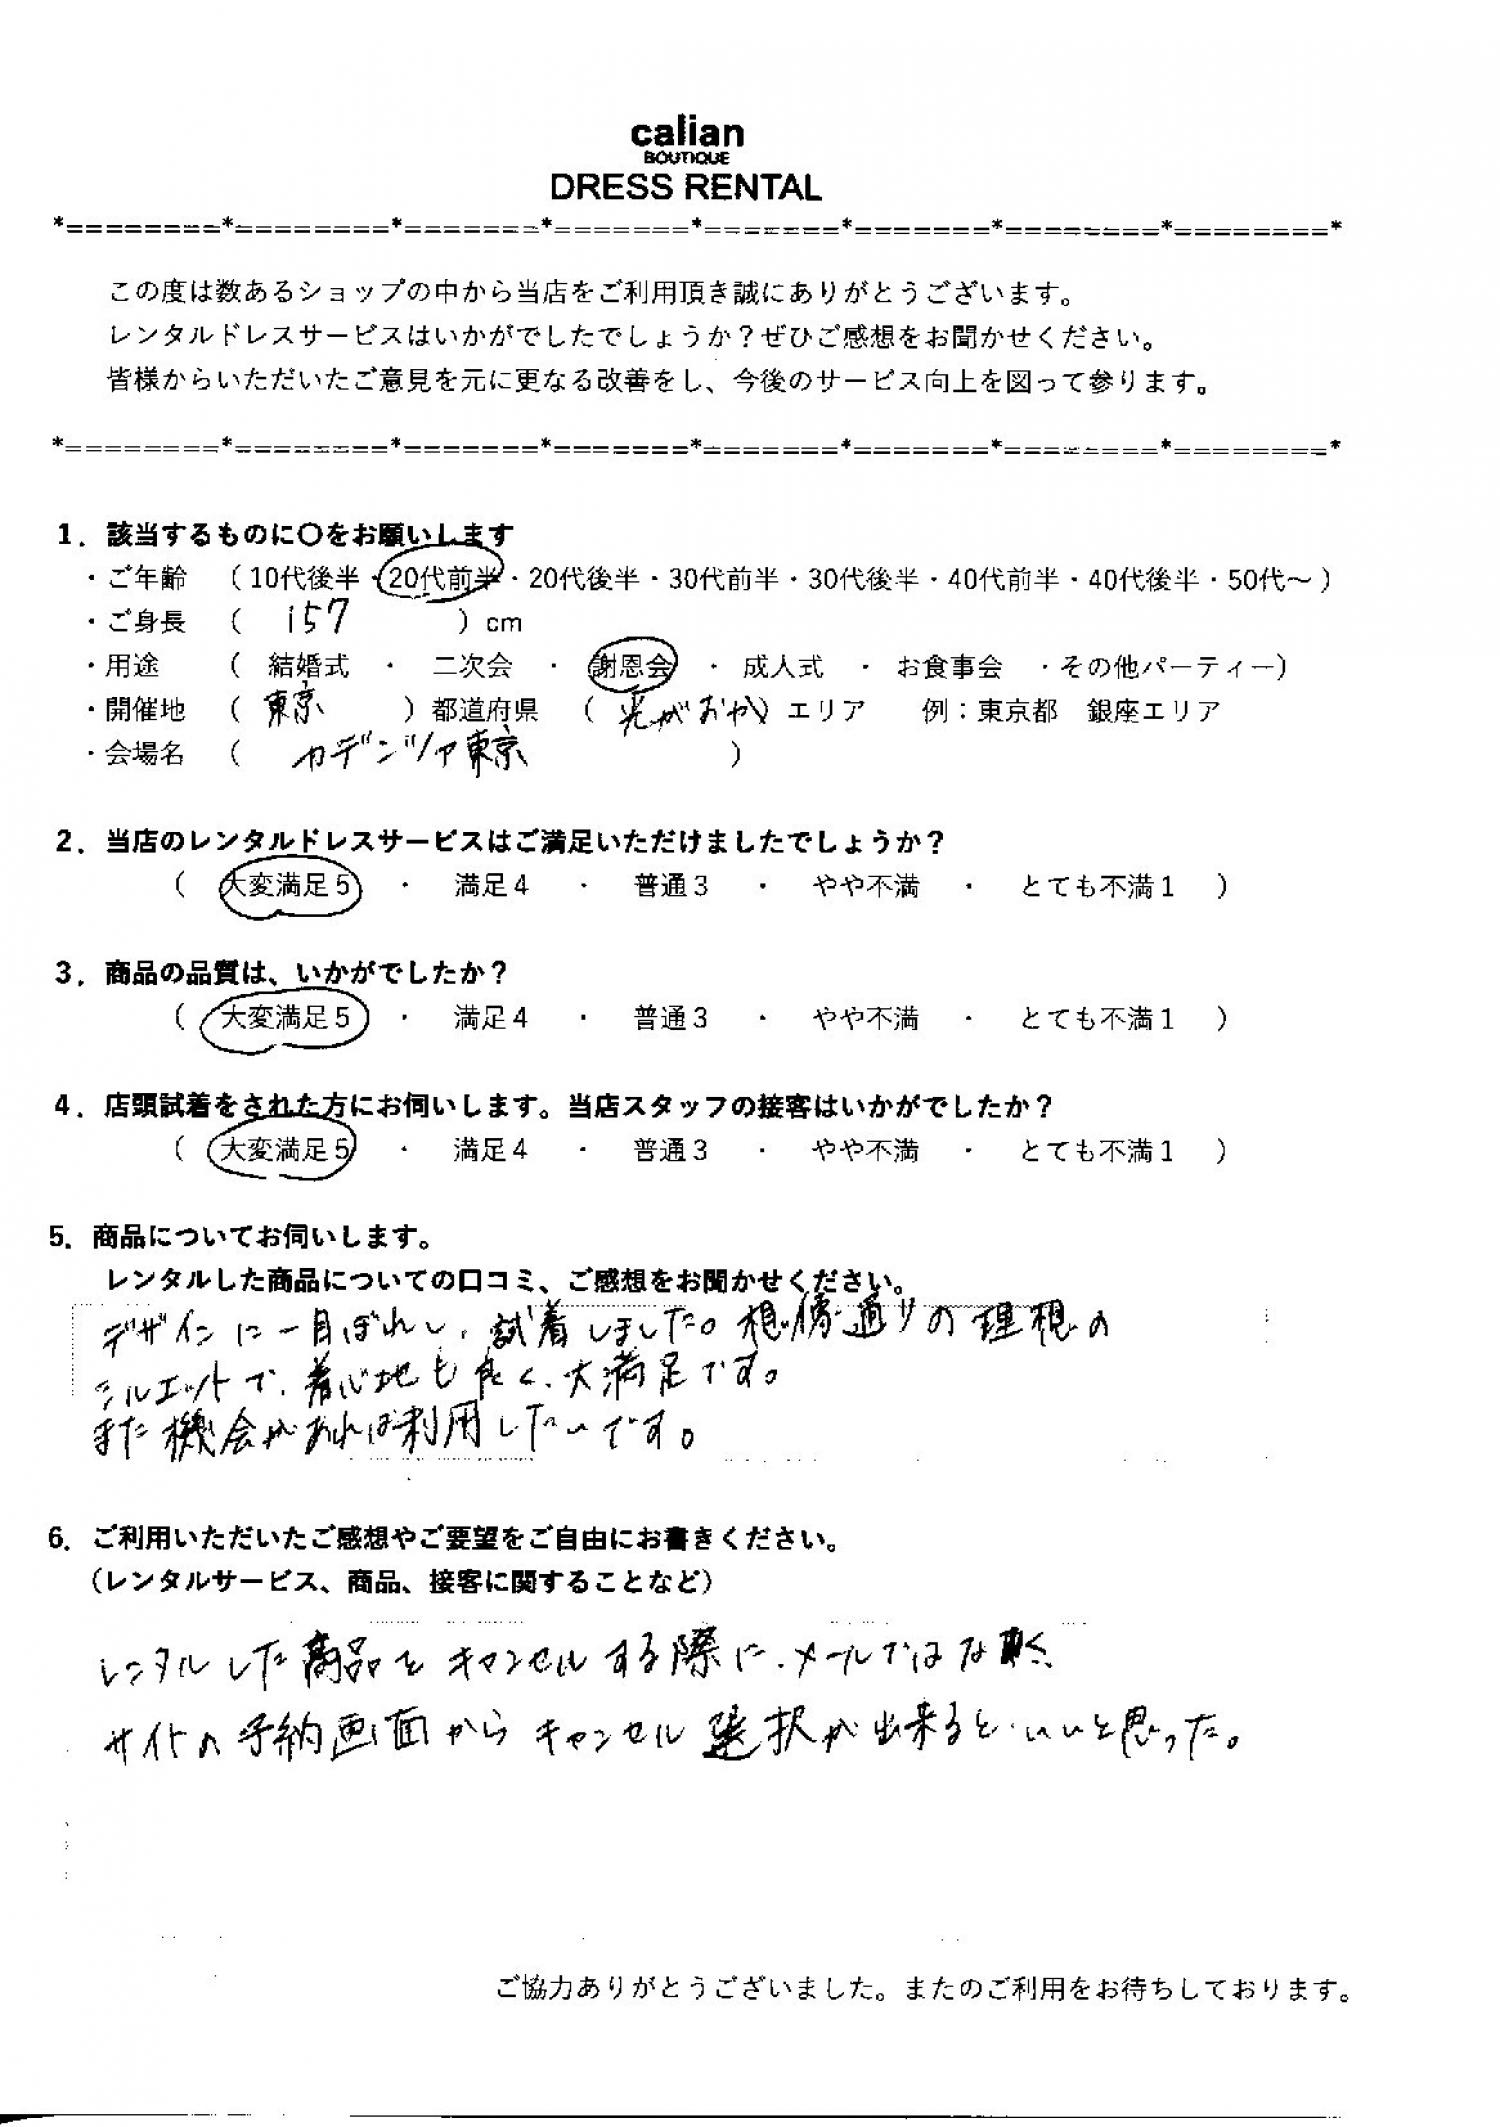 calian
BOUTIQUE
DRESS RENTAL
*========*========*=======*=======*=======*=======*========*========*
この度は数あるショップの中から当店をご利用頂き誠にありがとうございます。
レンタルドレスサービスはいかがでしたでしょうか？ぜひご感想をお聞かせください。
皆様からいただいたご意見を元に更なる改善をし、今後のサービス向上を図って参ります。
*========*========*=======*=======*=======*=======*========*========*
1．該当するものに〇をお願いします
・ご年齢 （10代後半・20代前半・20代後半・30代前半・30代後半・40代前半・40代後半・50代～）
・ご身長 （ 157 ）cm
・用途 （ 結婚式 ・ 二次会 ・ 謝恩会 ・ 成人式 ・ お食事会 ・その他パーティー）
・開催地 （ 東京 ）都道府県 （ 光がおか ）エリア 例：東京都 銀座エリア
・会場名 （ カデンツァ東京 ）
2．当店のレンタルドレスサービスはご満足いただけましたでしょうか？
（ 大変満足5 ・ 満足4 ・ 普通3 ・ やや不満 ・ とても不満1 ）
3．商品の品質は、いかがでしたか？
（ 大変満足5 ・ 満足4 ・ 普通3 ・ やや不満 ・ とても不満1 ）
4．店頭試着をされた方にお伺いします。当店スタッフの接客はいかがでしたか？
（ 大変満足5 ・ 満足4 ・ 普通3 ・ やや不満 ・ とても不満1 ）
5．商品についてお伺いします。
レンタルした商品についての口コミ、ご感想をお聞かせください。
デザインに一目ぼれし、試着しました。想像通りの理想の
シルエットで、着心地も良く、大満足です。
また機会があれば利用したいです。
6．ご利用いただいたご感想やご要望をご自由にお書きください。
（レンタルサービス、商品、接客に関することなど）
レンタルした商品をキャンセルする際に、メールではなく
サイトの予約画面からキャンセル選択が出来るといいと思った。
ご協力ありがとうございました。またのご利用をお待ちしております。